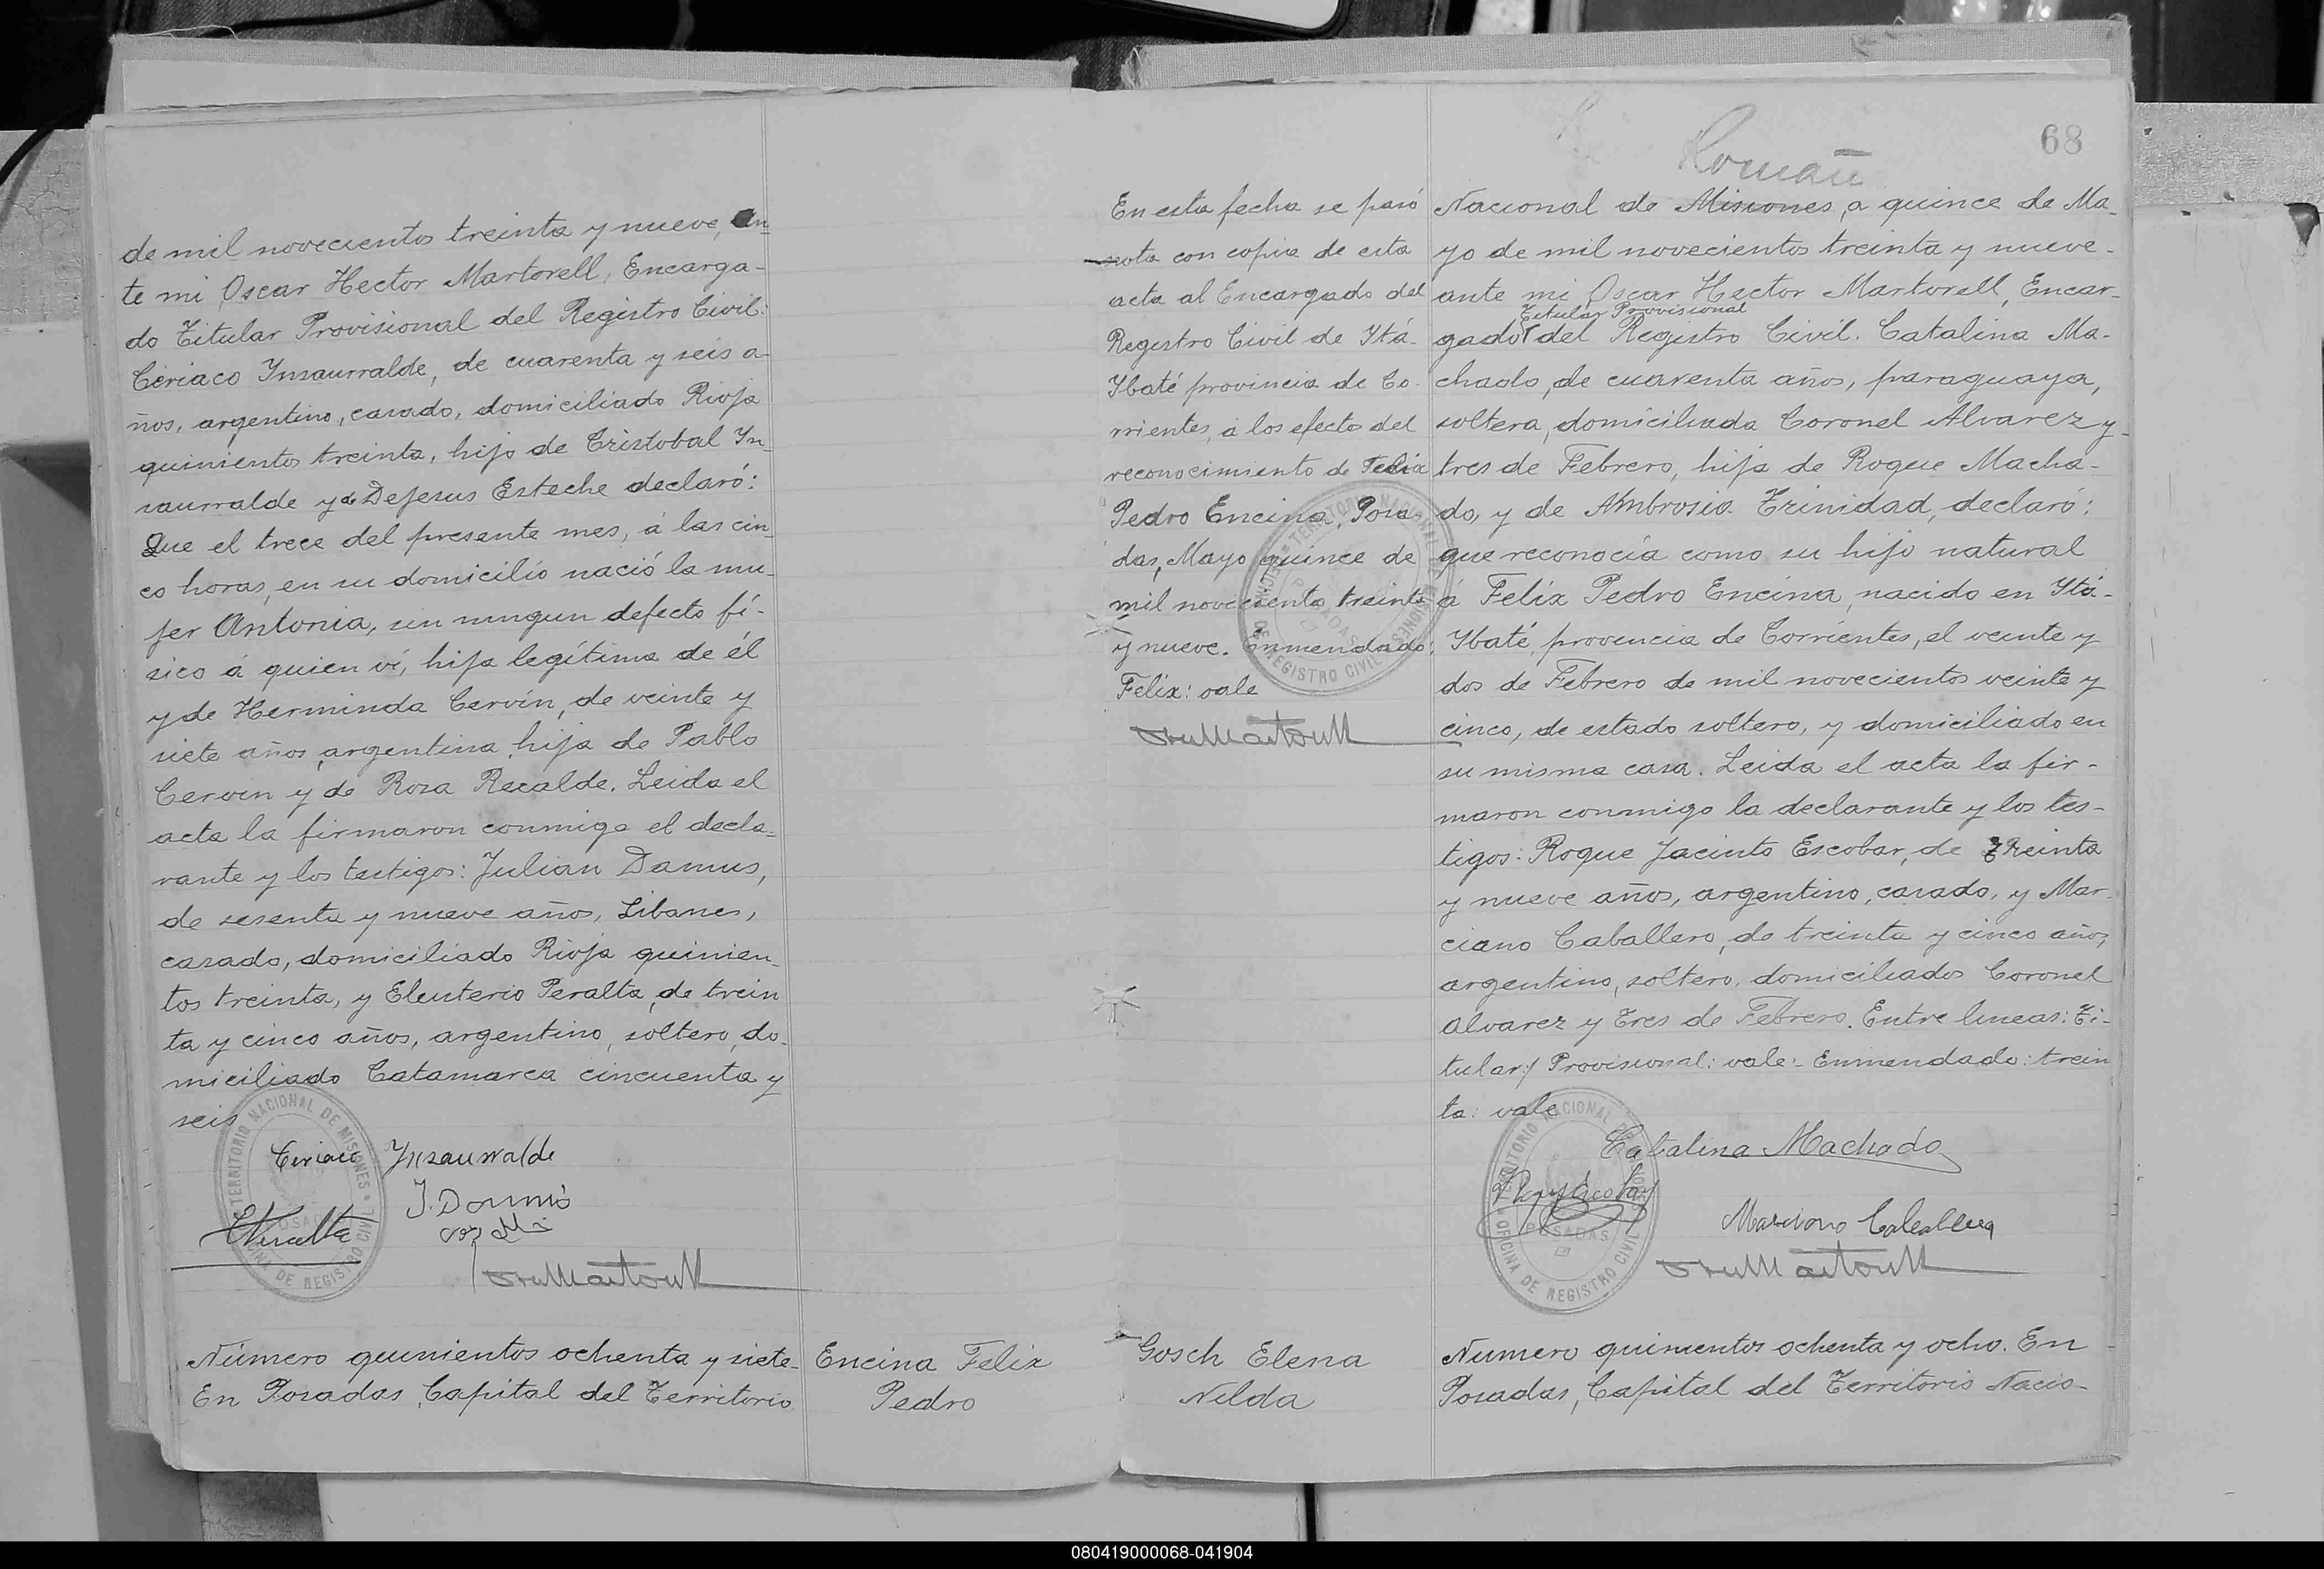 de mil novecientos treinta y nueve, an
te mi Oscar Hector Martorell, Encarga-
do Titular Provisional del Registro Civil:
Ciriaco Ynsaurralde, de cuarenta y seis a-
ños, argentino, casado, domiciliado Rioja
quinientos treinta, hijo de Cristobal Yn
saurralde y de Dejesus Esteche declaró:
Que el trece del presente mes, á las cin
co horas, en su domicilio nació la mu-
jer Antonia, sin ningun defecto fí-
sico á quien ví, hija legítima de él
y de Herminda Cervín, de veinte y
siete años, argentina, hija de Pablo
Cervin y de Rosa Recalde. Leida el
acta la firmaron conmigo el decla-
rante y los testigos: Julian Damus,
de sesenta y nueve años, Libanes,
casado, domiciliado Rioja quinien-
tos treinta, y Eleuterio Peralta, de trein
ta y cinco años, argentino, soltero, do-
miciliado Catamarca cincuenta y
seis
Ciriaco Ynsaurralde
TERRITORIO NACIONAL DE MISIONES
POSADAS
OFICINA DE REGISTRO CIVIL
Número quinientos ochenta y siete-
En Posadas, Capital del Territorio
Encina Felix
Pedro
68
En esta fecha se pasó
nota con copia de esta
acta al Encargado del
Registro Civil de Itá-
Ybaté provincia de Co-
rrientes, á los efecto del
reconocimiento de Felix
Pedro Encina. Posa-
das, Mayo quince de
mil novecientos treinta
y nueve. Enmendado:
Felix: vale
TERRITORIO NACIONAL DE MISIONES
POSADAS
OFICINA DE REGISTRO CIVIL
Nacional de Misiones, a quince de Ma-
yo de mil novecientos treinta y nueve-
ante mi Oscar Hector Martorell, Encar-
Titular Provisional
gado del Registro Civil. Catalina Ma-
chado, de cuarenta años, paraguaya,
soltera, domiciliada Coronel Alvarez y-
tres de Febrero, hija de Roque Macha-
do, y de Ambrosia Trinidad, declaró:
que reconocía como su hijo natural
á Felix Pedro Encina, nacido en Itá-
Ybaté, provincia de Corrientes, el veinte y
dos de Febrero de mil novecientos veinte y
cinco, de estado soltero, y domiciliado en
su misma casa. Leida el acta la fir-
maron conmigo la declarante y los tes-
tigos: Roque Jacinto Escobar, de treinta
y nueve años, argentino, casado, y Mar-
ciano Caballero, de treinta y cinco años,
argentino, soltero, domiciliados Coronel
Alvarez y Tres de Febrero. Entre lineas: Ti-
tular/ Provisional: vale- Enmendado: trein
ta: vale
Catalina Machado
Marciano Caballero
TERRITORIO NACIONAL DE MISIONES
POSADAS
OFICINA DE REGISTRO CIVIL
Gosch Elena
Nelda
Numero quinientos ochenta y ocho. En
Posadas, Capital del Territorio Nacio-
080419000068-041904